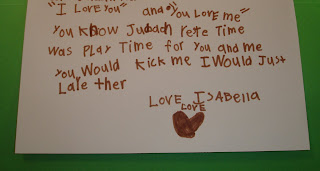 "I LOVE YOU" and "YOU LOVE me"
You know Judach rete Time
was PLAY Time for You and me
You Would Kick me I Would Just
Late ther
LOVE ISABella
LOVE